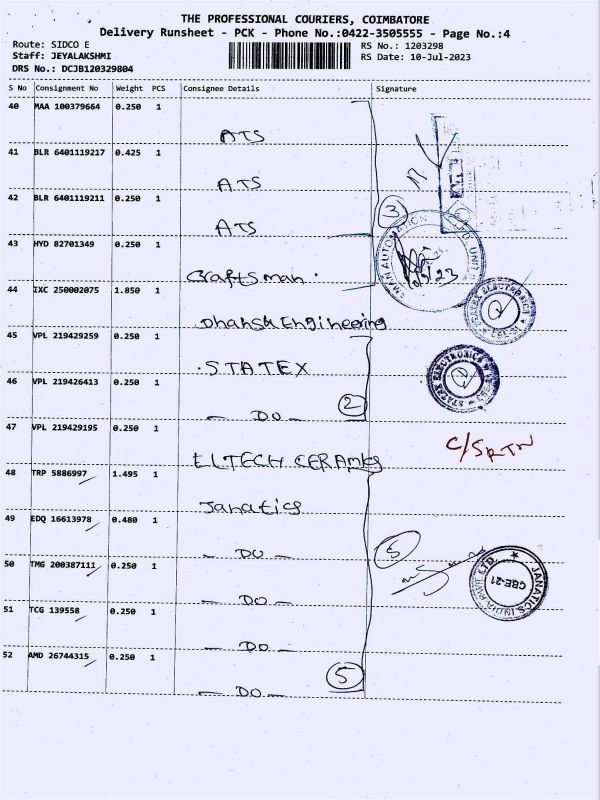 THE PROFESSIONAL COURIERS, COIMBATORE
Delivery Runsheet - PCK - Phone No.:0422-3505555 - Page No.:4
Route: SIDCO E
RS No.: 1203298
Staff: JEYALAKSHMI
RS Date: 10-Jul-2023
DRS No.: DCJB120329804
S No Consignment No Weight PCS Consignee Details Signature
40 MAA 100379664 0.250 1
ATS
41 BLR 6401119217 0.425 1
ATS
42 BLR 6401119211 0.250 1
ATS
3
43 HYD 82701349 0.250 1
Craftsman.
44 IXC 250002075 1.850 1
Dhansu Engineering
45 VPL 219429259 0.250 1
STATEX
46 VPL 219426413 0.250 1
- DO - 2
STATEX ELECTRONICS
47 VPL 219429195 0.250 1
ELTECH CERAMICS
C/S RTN
48 TRP 5886997 1.495 1
Janatics
49 EDQ 16613978 0.480 1
- DO - 5
50 TMG 200387111 0.250 1
- DO -
JANATICS INDIA PVT LTD
CBE-21
51 TCG 139558 0.250 1
- DO -
52 AMD 26744315 0.250 1
- DO - 5